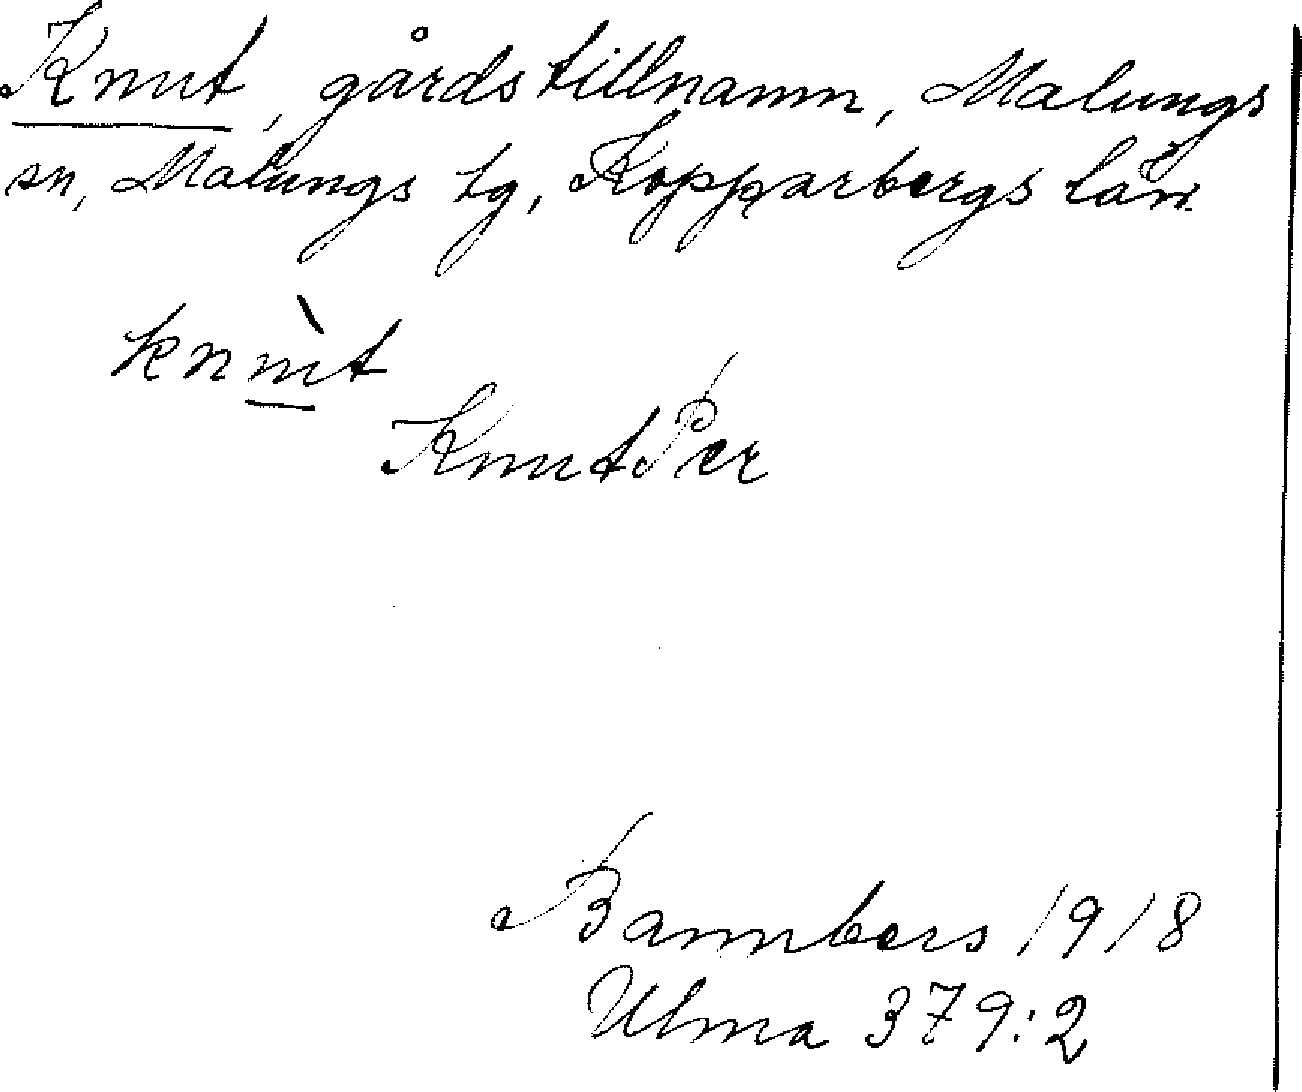 Knut, gårdstillnamn, Malungs
sn, Malungs tg, Kopparbergs län.
knùt
Knut Per
Bannbers 1918
Ulma 379:2